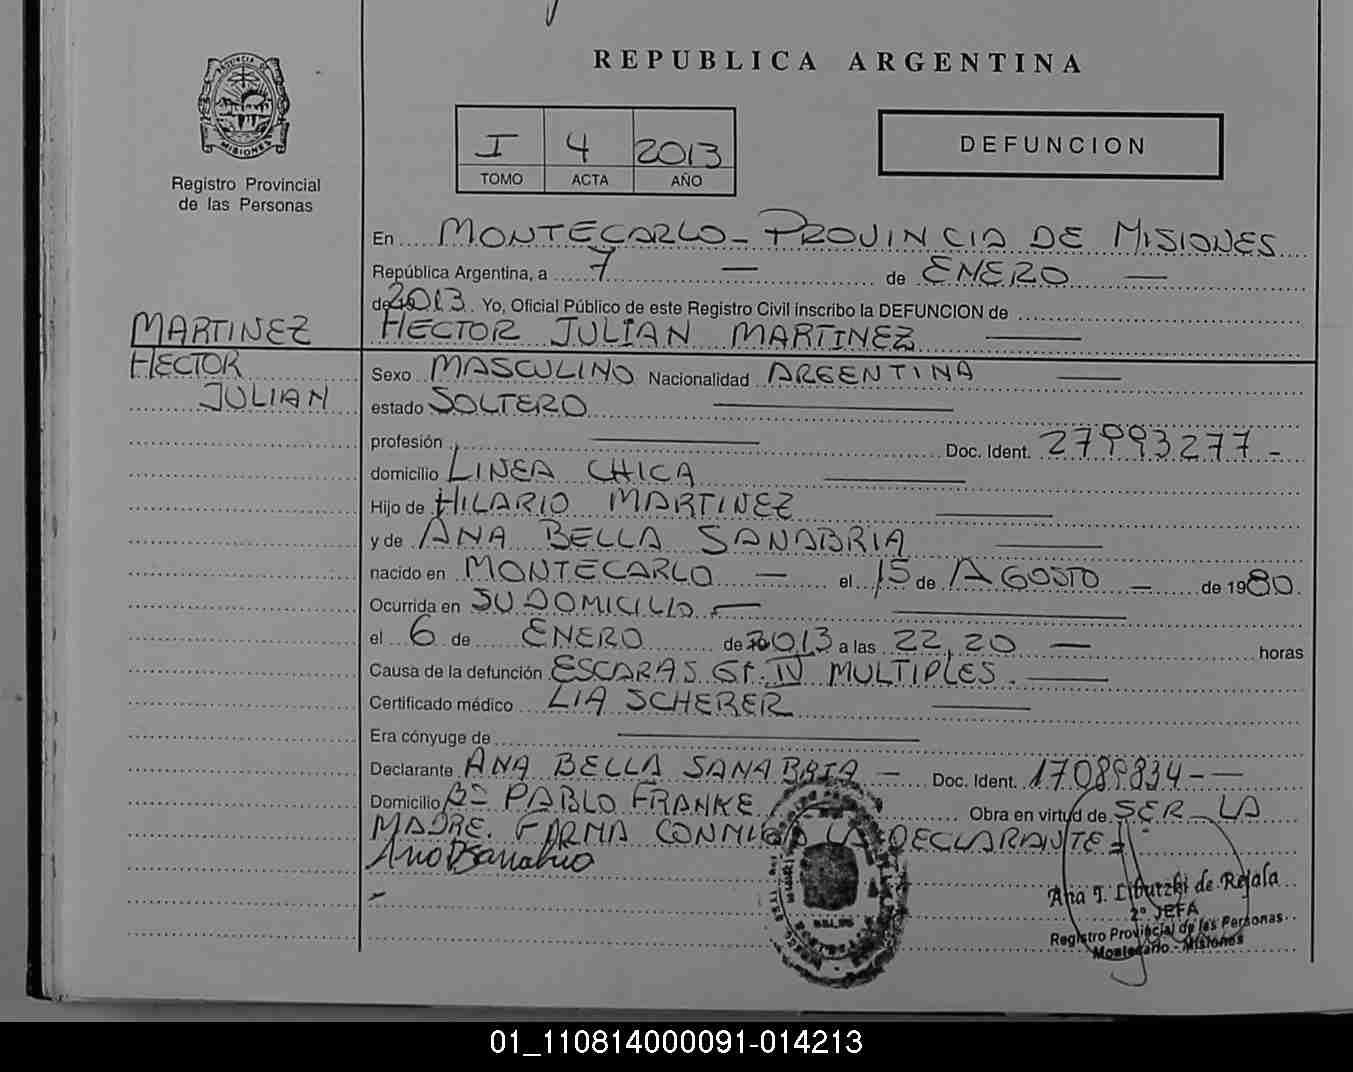 REPUBLICA ARGENTINA
PROVINCIA DE
MISIONES
Registro Provincial
de las Personas
I 4 2013
TOMO ACTA AÑO
DEFUNCION
En MONTECARLO - PROVINCIA DE MISIONES
República Argentina, a 7 — de ENERO —
de 2013 Yo, Oficial Público de este Registro Civil inscribo la DEFUNCION de
MARTINEZ
HECTOR
JULIAN
HECTOR JULIAN MARTINEZ
Sexo MASCULINO Nacionalidad ARGENTINA
estado SOLTERO
profesión Doc. Ident. 27993277-
domicilio LINEA CHICA
Hijo de HILARIO MARTINEZ
y de ANA BELLA SANABRIA
nacido en MONTECARLO — el 15 de AGOSTO — de 1980
Ocurrida en SU DOMICILIO —
el 6 de ENERO de 2013 a las 22,20 — horas
Causa de la defunción ESCARAS Gr. IV MULTIPLES.
Certificado médico LIA SCHERER
Era cónyuge de
Declarante ANA BELLA SANABRIA — Doc. Ident. 17089834--
Domicilio Bº PABLO FRANKE Obra en virtud de SER LA
MADRE. FIRMA CONMIGO LA DECLARANTE
Ana B Sanabria
Ana T. Libutzki de Rejala
2º JEFA
Registro Provincial de las Personas
Montecarlo - Misiones
01_110814000091-014213